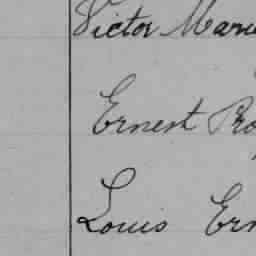 Victor Marie
Ernest Ro
Louis Ern